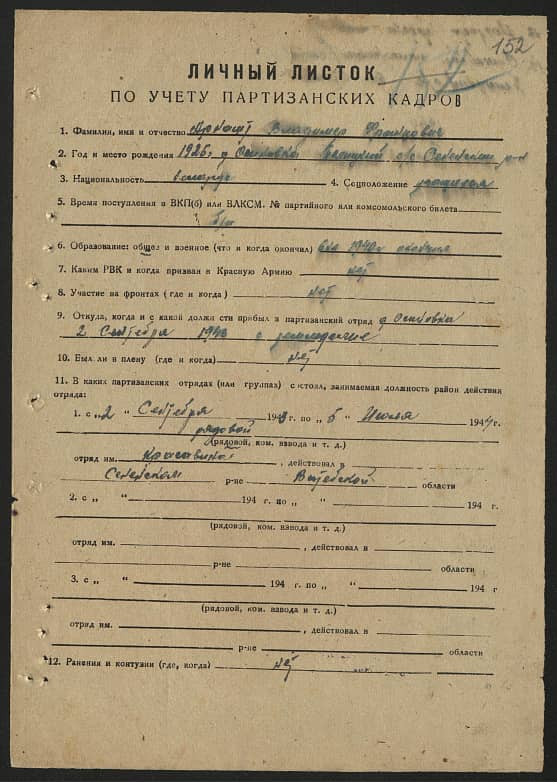 152
ЛИЧНЫЙ ЛИСТОК
ПО УЧЕТУ ПАРТИЗАНСКИХ КАДРОВ
1. Фамилия, имя и отчество Владимир
2. Год и место рождения 1926 г Осиновка
3. Национальность 4. Соцположение учащийся
5. Время поступления в ВКП(б) или ВЛКСМ. № партийного или комсомольского билета
б/п
6. Образование: общее и военное (что и когда окончил) 1940 г
7. Каким РВК и когда призван в Красную Армию нет
8. Участие на фронтах (где и когда) нет
9. Откуда, когда и с какой должности прибыл в партизанский отряд д Осиновка
2 Сентября 1943
10. Был ли в плену (где и когда) нет
11. В каких партизанских отрядах (или группах) состоял, занимаемая должность район действия
отряда:
1. с „2 “ Сентября 1943 г. по „ 5 “ Июля 1944 г.
рядовой
(рядовой, ком. взвода и т. д.)
отряд им. , действовал в
Сененском р-не Витебской области
2. с „ “ 194 г. по „ “ 194 г.
(рядовой, ком. взвода и т. д.)
отряд им. , действовал в
р-не области
3. с „ “ 194 г. по „ “ 194 г
(рядовой, ком. взвода и т. д.)
отряд им. , действовал в
р-не области
12. Ранения и контузии (где, когда) нет